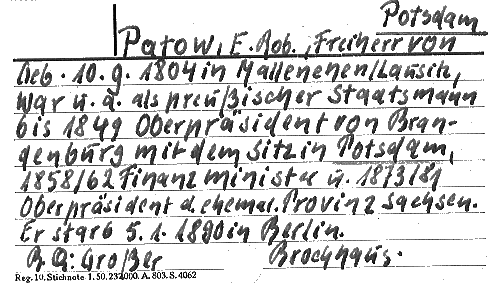 Potsdam
Patow, E. Rob., Freiherr von
Geb. 10.9.1804 in Mallenchen/Lausitz,
war u. a. als preußischer Staatsmann
bis 1849 Oberpräsident von Bran-
denburg mit dem Sitz in Potsdam,
1858/62 Finanzminister u. 1873/81
Oberpräsident d. ehemal. Provinz Sachsen.
Er starb 5.1.1890 in Berlin.
B. Q: Großer Brockhaus.
Reg. 10. Stichnote 1. 50. 232000. A. 803. S. 4062